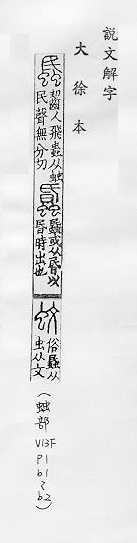 說文解字
大徐本
蟁
齧人飛蟲从䖵
民聲無分切
䘇
蟁或从昏以
昏時出也
蚊
俗蟁从
虫从文
(䖵部 V13F
P1
b1~
b2)